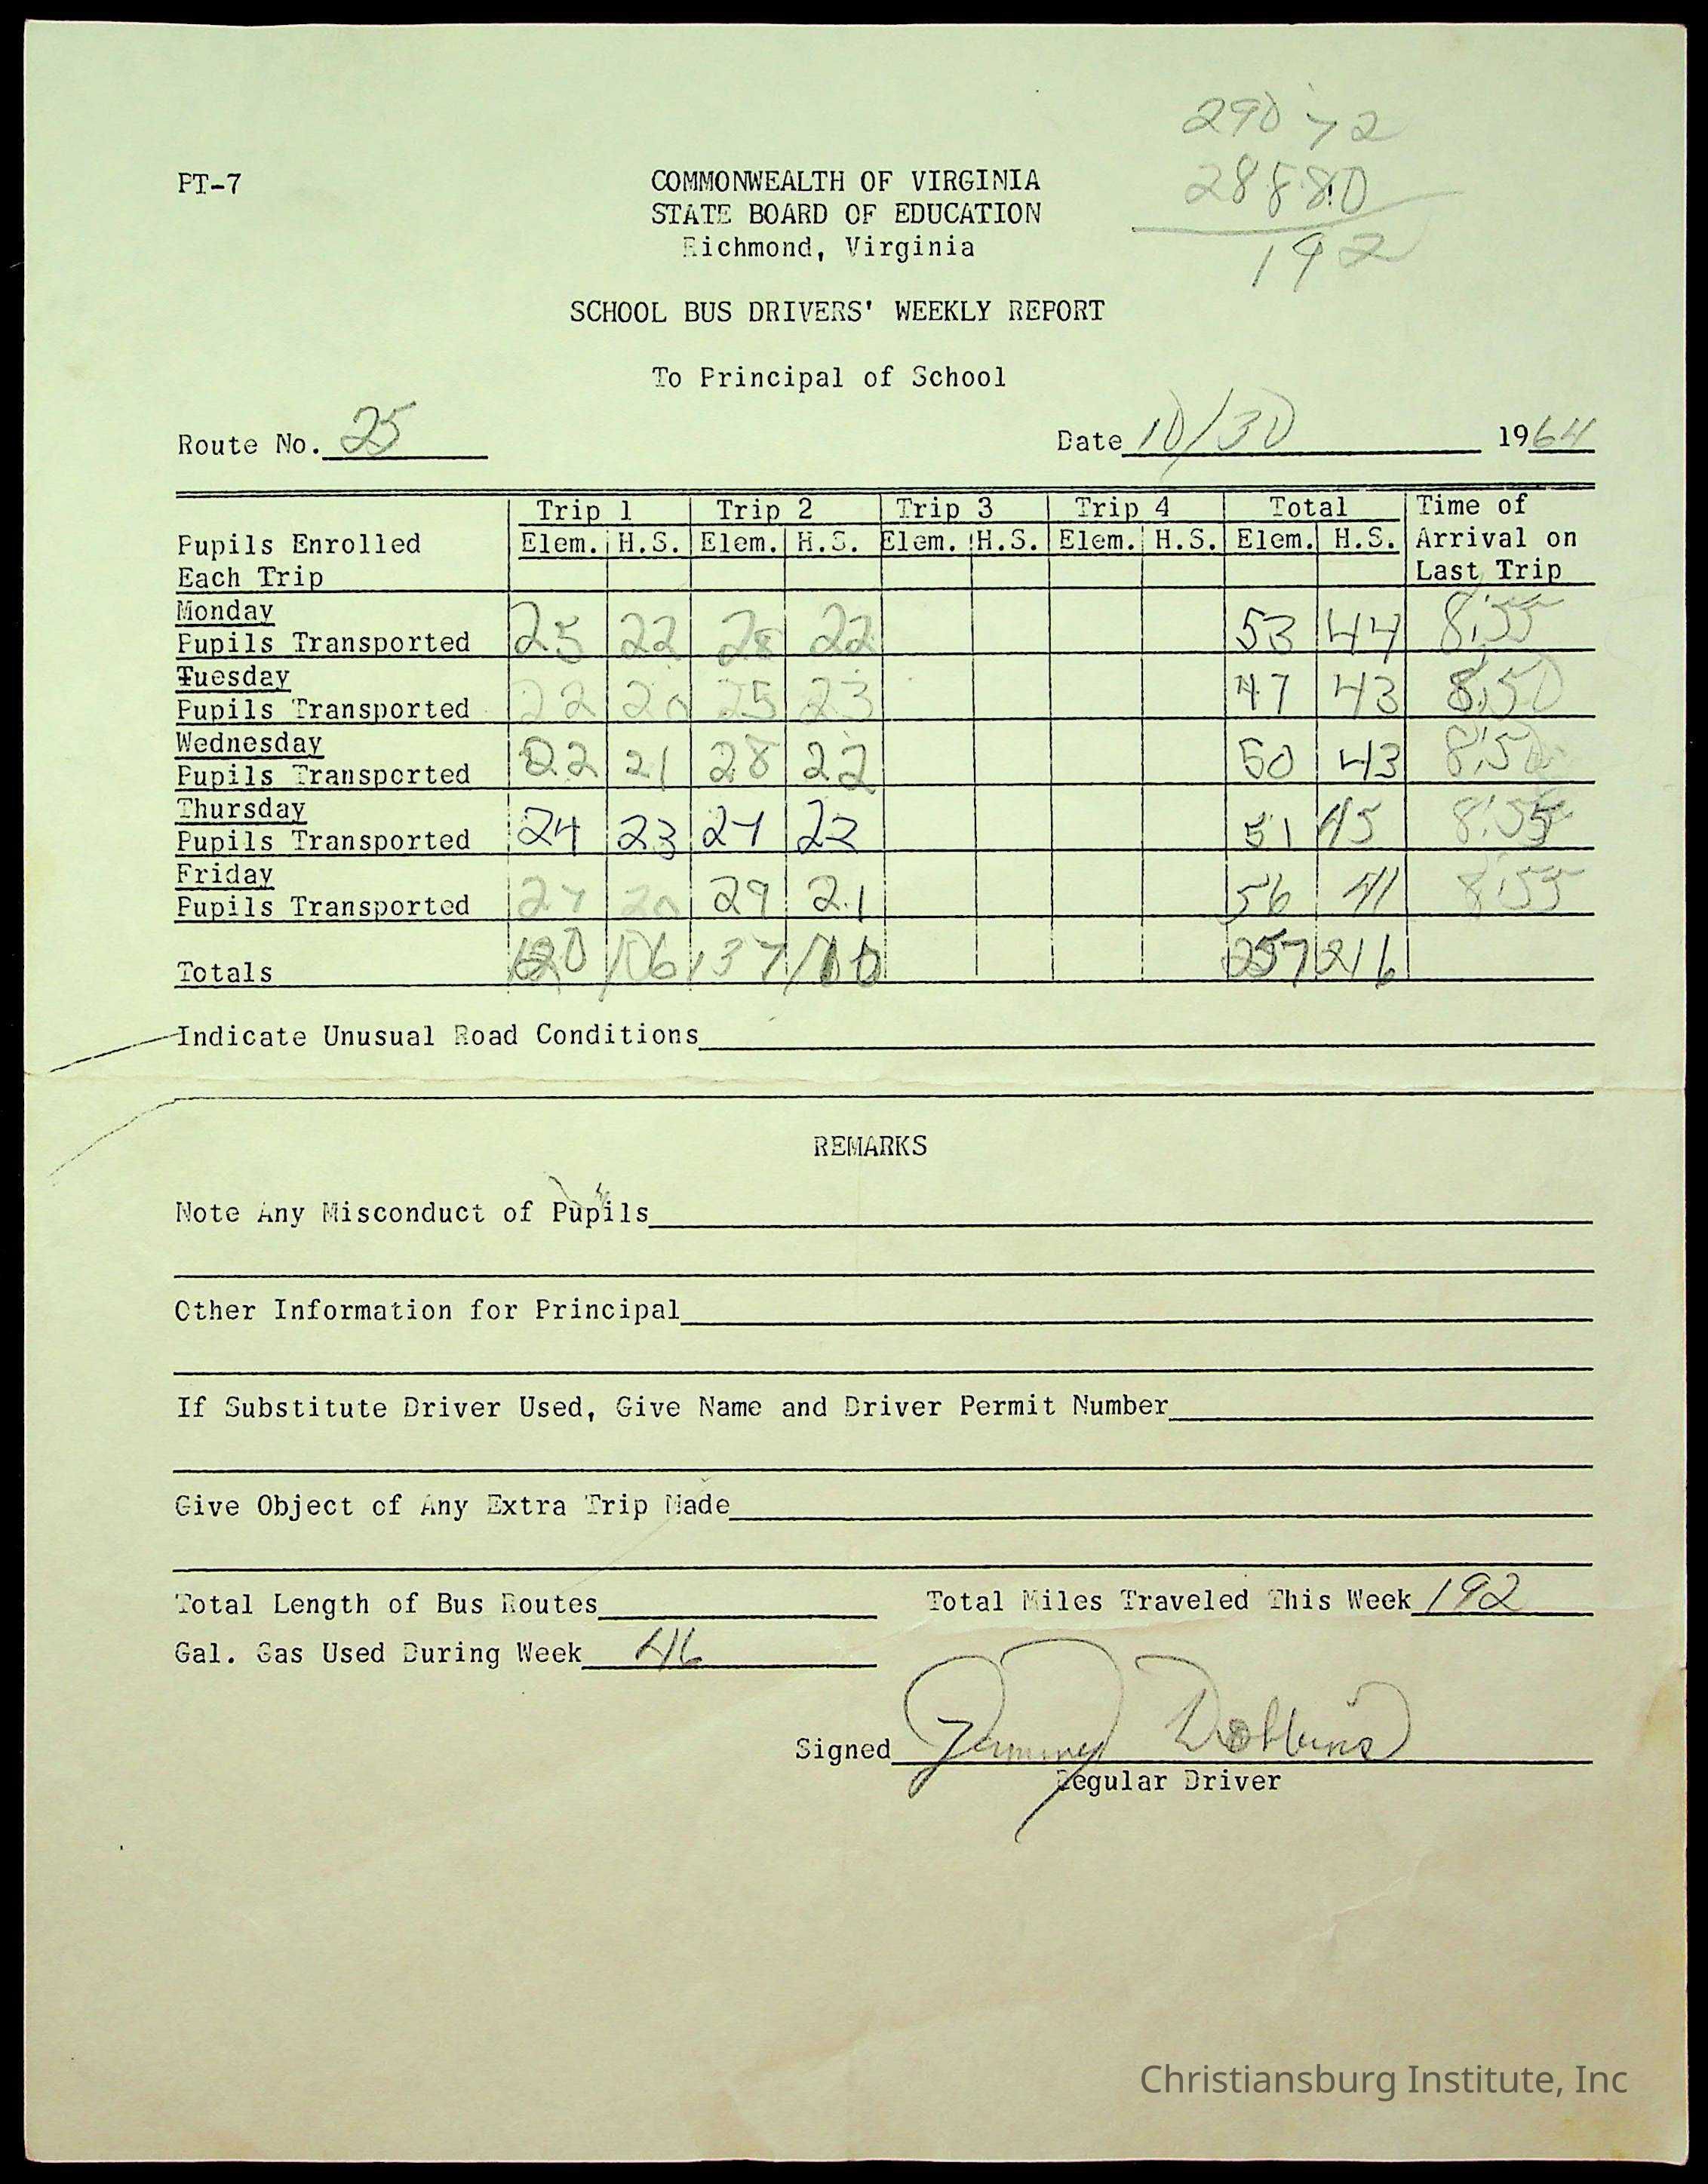 290 72
28880
192
PT-7
COMMONWEALTH OF VIRGINIA
STATE BOARD OF EDUCATION
Richmond, Virginia
SCHOOL BUS DRIVERS' WEEKLY REPORT
To Principal of School
Route No. 25 Date 10/30 1964
Trip 1 Trip 2 Trip 3 Trip 4 Total Time of
Pupils Enrolled Elem. H.S. Elem. H.S. Elem. H.S. Elem. H.S. Elem. H.S. Arrival on
Each Trip Last Trip
Monday
Pupils Transported 25 22 28 22 53 44 8:55
Tuesday
Pupils Transported 22 20 25 23 47 43 8:50
Wednesday
Pupils Transported 22 21 28 22 50 43 8:50
Thursday
Pupils Transported 24 23 27 22 51 45 8:55
Friday
Pupils Transported 27 20 29 21 56 41 8:55
Totals 120 106 137 110 257 216
Indicate Unusual Road Conditions
REMARKS
Note Any Misconduct of Pupils
Other Information for Principal
If Substitute Driver Used, Give Name and Driver Permit Number
Give Object of Any Extra Trip Made
Total Length of Bus Routes Total Miles Traveled This Week 192
Gal. Gas Used During Week 46
Signed Jimmy Dobbins
Regular Driver
Christiansburg Institute, Inc